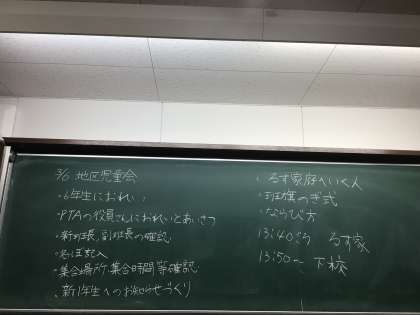 3/6 地区児童会
・6年生におれい
・PTAの役員さんにおれいとあいさつ
・新班長、副班長の確認
・名ぼ記入
・集合場所、集合時間等確認
・新1年生へのお知らせづくり
・るす家庭へいく人
・班旗のぎ式
・ならび方
13:40ごろ るす家
13:50〜 下校